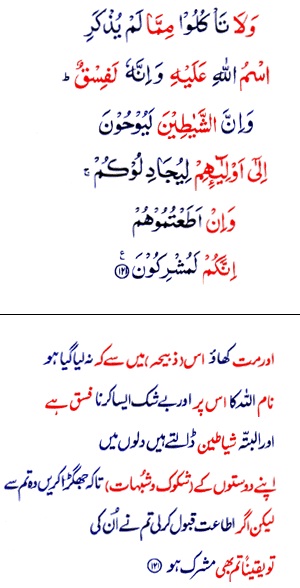 وَلَا تَاْكُلُوْا مِمَّا لَمْ يُذْكَرِ
اسْمُ اللّٰهِ عَلَيْهِ وَاِنَّهٗ لَفِسْقٌ ؕ
وَاِنَّ الشَّيٰطِيْنَ لَيُوْحُوْنَ
اِلٰٓى اَوْلِيٰٓـِٕهِمْ لِيُجَادِلُوْكُمْ ۚ
وَاِنْ اَطَعْتُمُوْهُمْ
اِنَّكُمْ لَمُشْرِكُوْنَ ﴿۱۲۱﴾ ع
اورمت کھاؤ اس (ذبیحہ) میں سے کہ نہ لیا گیا ہو
نام اللہ کا اس پر اور بے شک ایسا کرنا فسق ہے
اور البتہ شیاطین ڈالتے ہیں دلوں میں
اپنے دوستوں کے (شکوک وشبہات) تاکہ جھگڑا کریں وہ تم سے
لیکن اگر اطاعت قبول کرلی تم نے اُن کی
تو یقیناً تم بھی مشرک ہو ﴿۱۲۱﴾